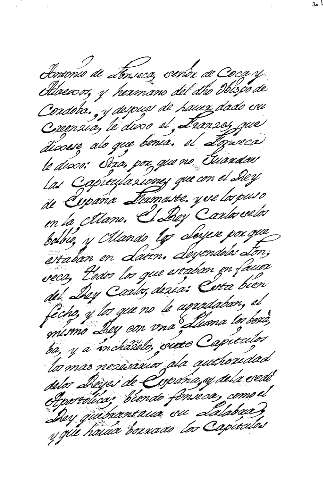 Antonio de Fonseca, señor de Coca y
Alaexos, y hermano del dho Obispo de
Cordoba. y despues de hauer dado su
Creencia, le dixo el Franzes, que
dixese alo que benia. el Fonseca
le dixo: Señor, por que no Guardais
las Capitulaciones que con el Rey
de España Firmaste, y se los puso
en la Mano. El Rey Carlos se los
bolbio, y Mando los Leyese por que
estaban en Latin. Leyendolos Fon
seca, Todos los que estaban en fauor
del Rey Carlos, dezia: Esta bien
fecho, y los que no le agradaban, el
mismo Rey con una Pluma los borra
ba, y a inchaselo, siete Capitulos
los mas necesarios ala authoridad
delos Reyes de España, y de la sede
Apostolica, biendo fonseca, como el
Rey quebrantaua su Palabra,
y que hauia borrado los Capitulos